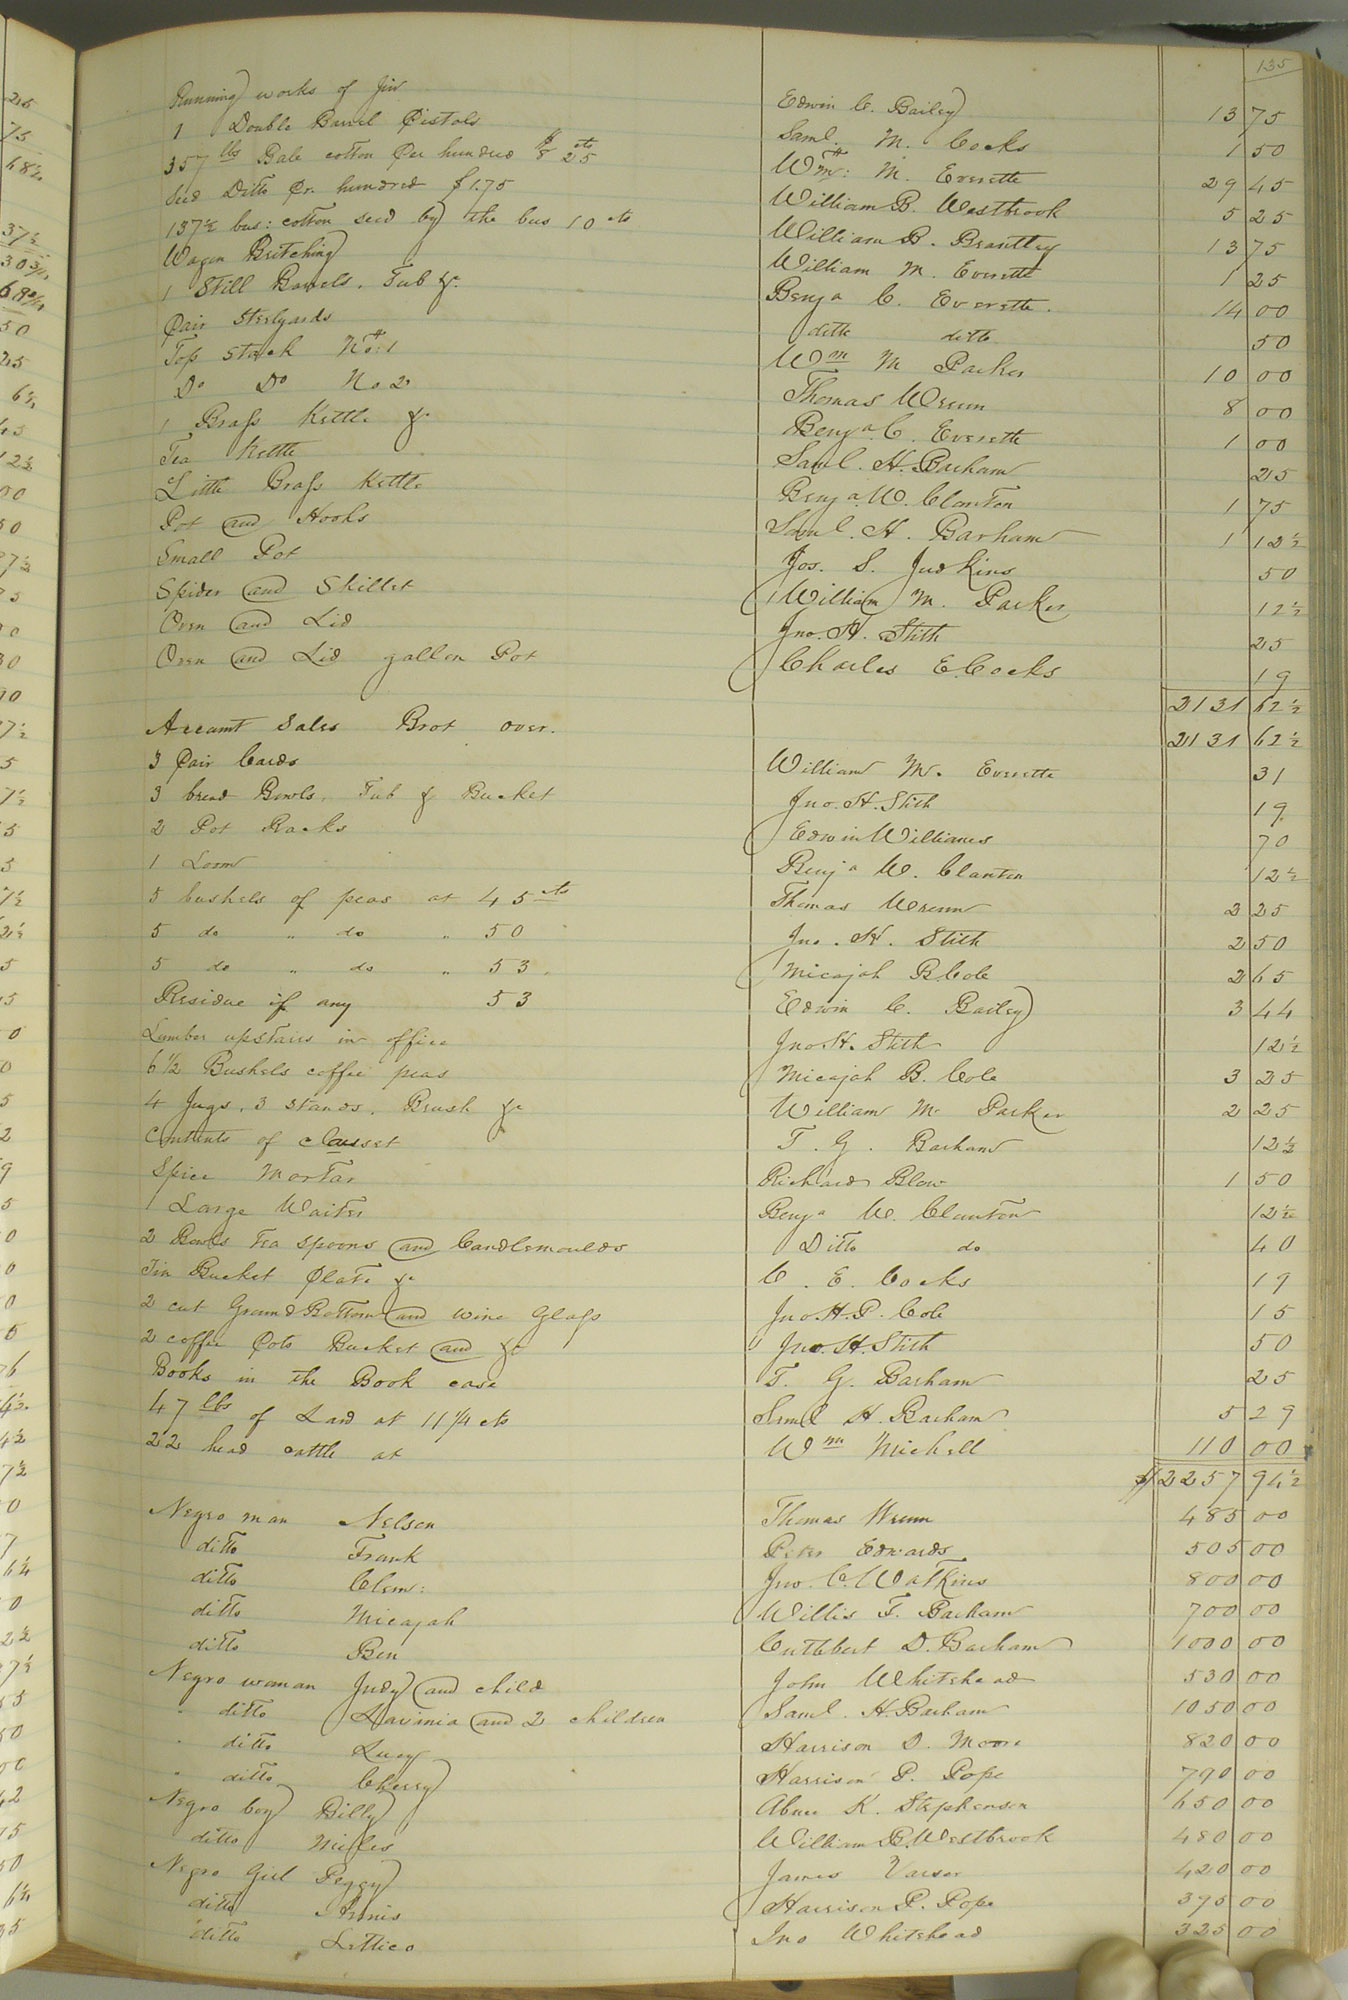 135
Running works of Gin Edwin C. Bailey 13 75
1 Double Barrel Pistols Saml. M. Cocks 1 50
357 lbs Bale cotton Per hundred $8 25 cts Wm: M. Everette 29 45
Seed Ditto Pr. hundred $1.75 William B. Westbrook 5 25
137½ bus: cotton seed by the bus 10 cts William B. Brantley 13 75
Wagon Britching William M. Everette 1 25
1 Still Barrels, Tub &c Benja C. Everette. 14 00
Pair Steelyards ditto ditto 50
Top stack No: 1 Wm M Parker 10 00
Do Do No 2 Thomas Wrenn 8 00
1 Brass Kettle &c Benja. C. Everette 1 00
Tea Kettle Saml. H. Barham 25
Little Brass Kettle Benja W. Clanton 1 75
Pot and Hooks Saml. H. Barham 1 12½
Small Pot Jos. S. Judkins 50
Spider and Skillet William M. Parker 12½
Oven and Lid Jno. H. Stith 25
Oven and Lid gallon Pot Charles E. Cocks 19
2131 62½
Account Sales Brot over. 2131 62½
3 Pair Cards William M. Everette 31
3 bread Bowls, Tub & Bucket Jno. H. Stith 19
2 Pot Racks Edwin Williams 70
1 Loom Benja W. Clanton 12½
5 bushels of peas at 45 cts Thomas Wrenn 2 25
5 do " do " 50 Jno. H. Stith 2 50
5 do " do " 53. Micajah B. Cole 2 65
Residue if any 53 Edwin C. Bailey 3 44
Lumber upstairs in office Jno H. Stith 12½
6½ Bushels coffee peas Micajah B. Cole 3 25
4 Jugs, 3 stands, Brush &c William M. Parker 2 25
Contents of clausset T. G. Barham 12½
Spice Mortar Richard Blow 1 50
1 Large Waiter Benja W. Clanton 12½
2 Bowls Tea spoons and Candlemoulds Ditto do 40
Tin Bucket Plate &c C. E. Cocks 19
2 cut Ground Bottom and wine Glass Jno. H. P. Cole 15
2 coffee Pots Bucket and &c Jno. H. Stith 50
Books in the Book case T. G. Barham 25
47 lbs of Lard at 11¼ cts Saml H. Barham 5 29
22 head cattle at Wm Michell 110 00
$2257 94½
Negro man Nelson Thomas Wrenn 485 00
ditto Frank Peter Edwards 505 00
ditto Clem: Jno. C. Watkins 800 00
ditto Micajah Willis T. Barham 700 00
ditto Ben Cuthbert D. Barham 1000 00
Negro woman Judy and child John Whitehead 530 00
" ditto Lavinia and 2 children Saml. H. Barham 1050 00
" ditto Lucy Harrison D. Moore 820 00
" ditto Cherry Harrison P. Pope 790 00
Negro boy Billy Abner K. Stephenson 650 00
ditto Miles William B. Westbrook 480 00
Negro Girl Peggy James Vaiser 420 00
ditto Annis Harrison P. Pope 395 00
ditto Lettice Jno Whitehead 325 00